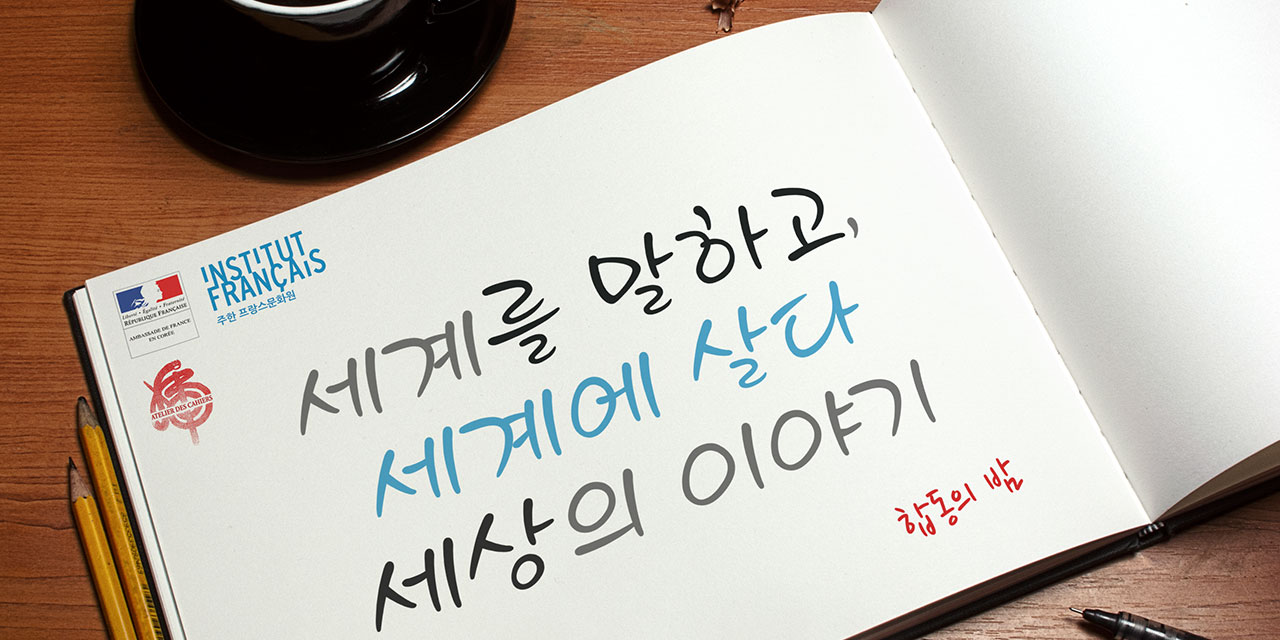 INSTITUT
FRANÇAIS
주한 프랑스문화원
Liberté • Égalité • Fraternité
RÉPUBLIQUE FRANÇAISE
AMBASSADE DE FRANCE
EN CORÉE
ATELIER DES CAHIERS
세계를 말하고,
세계에 살다
세상의 이야기
합동의 밤